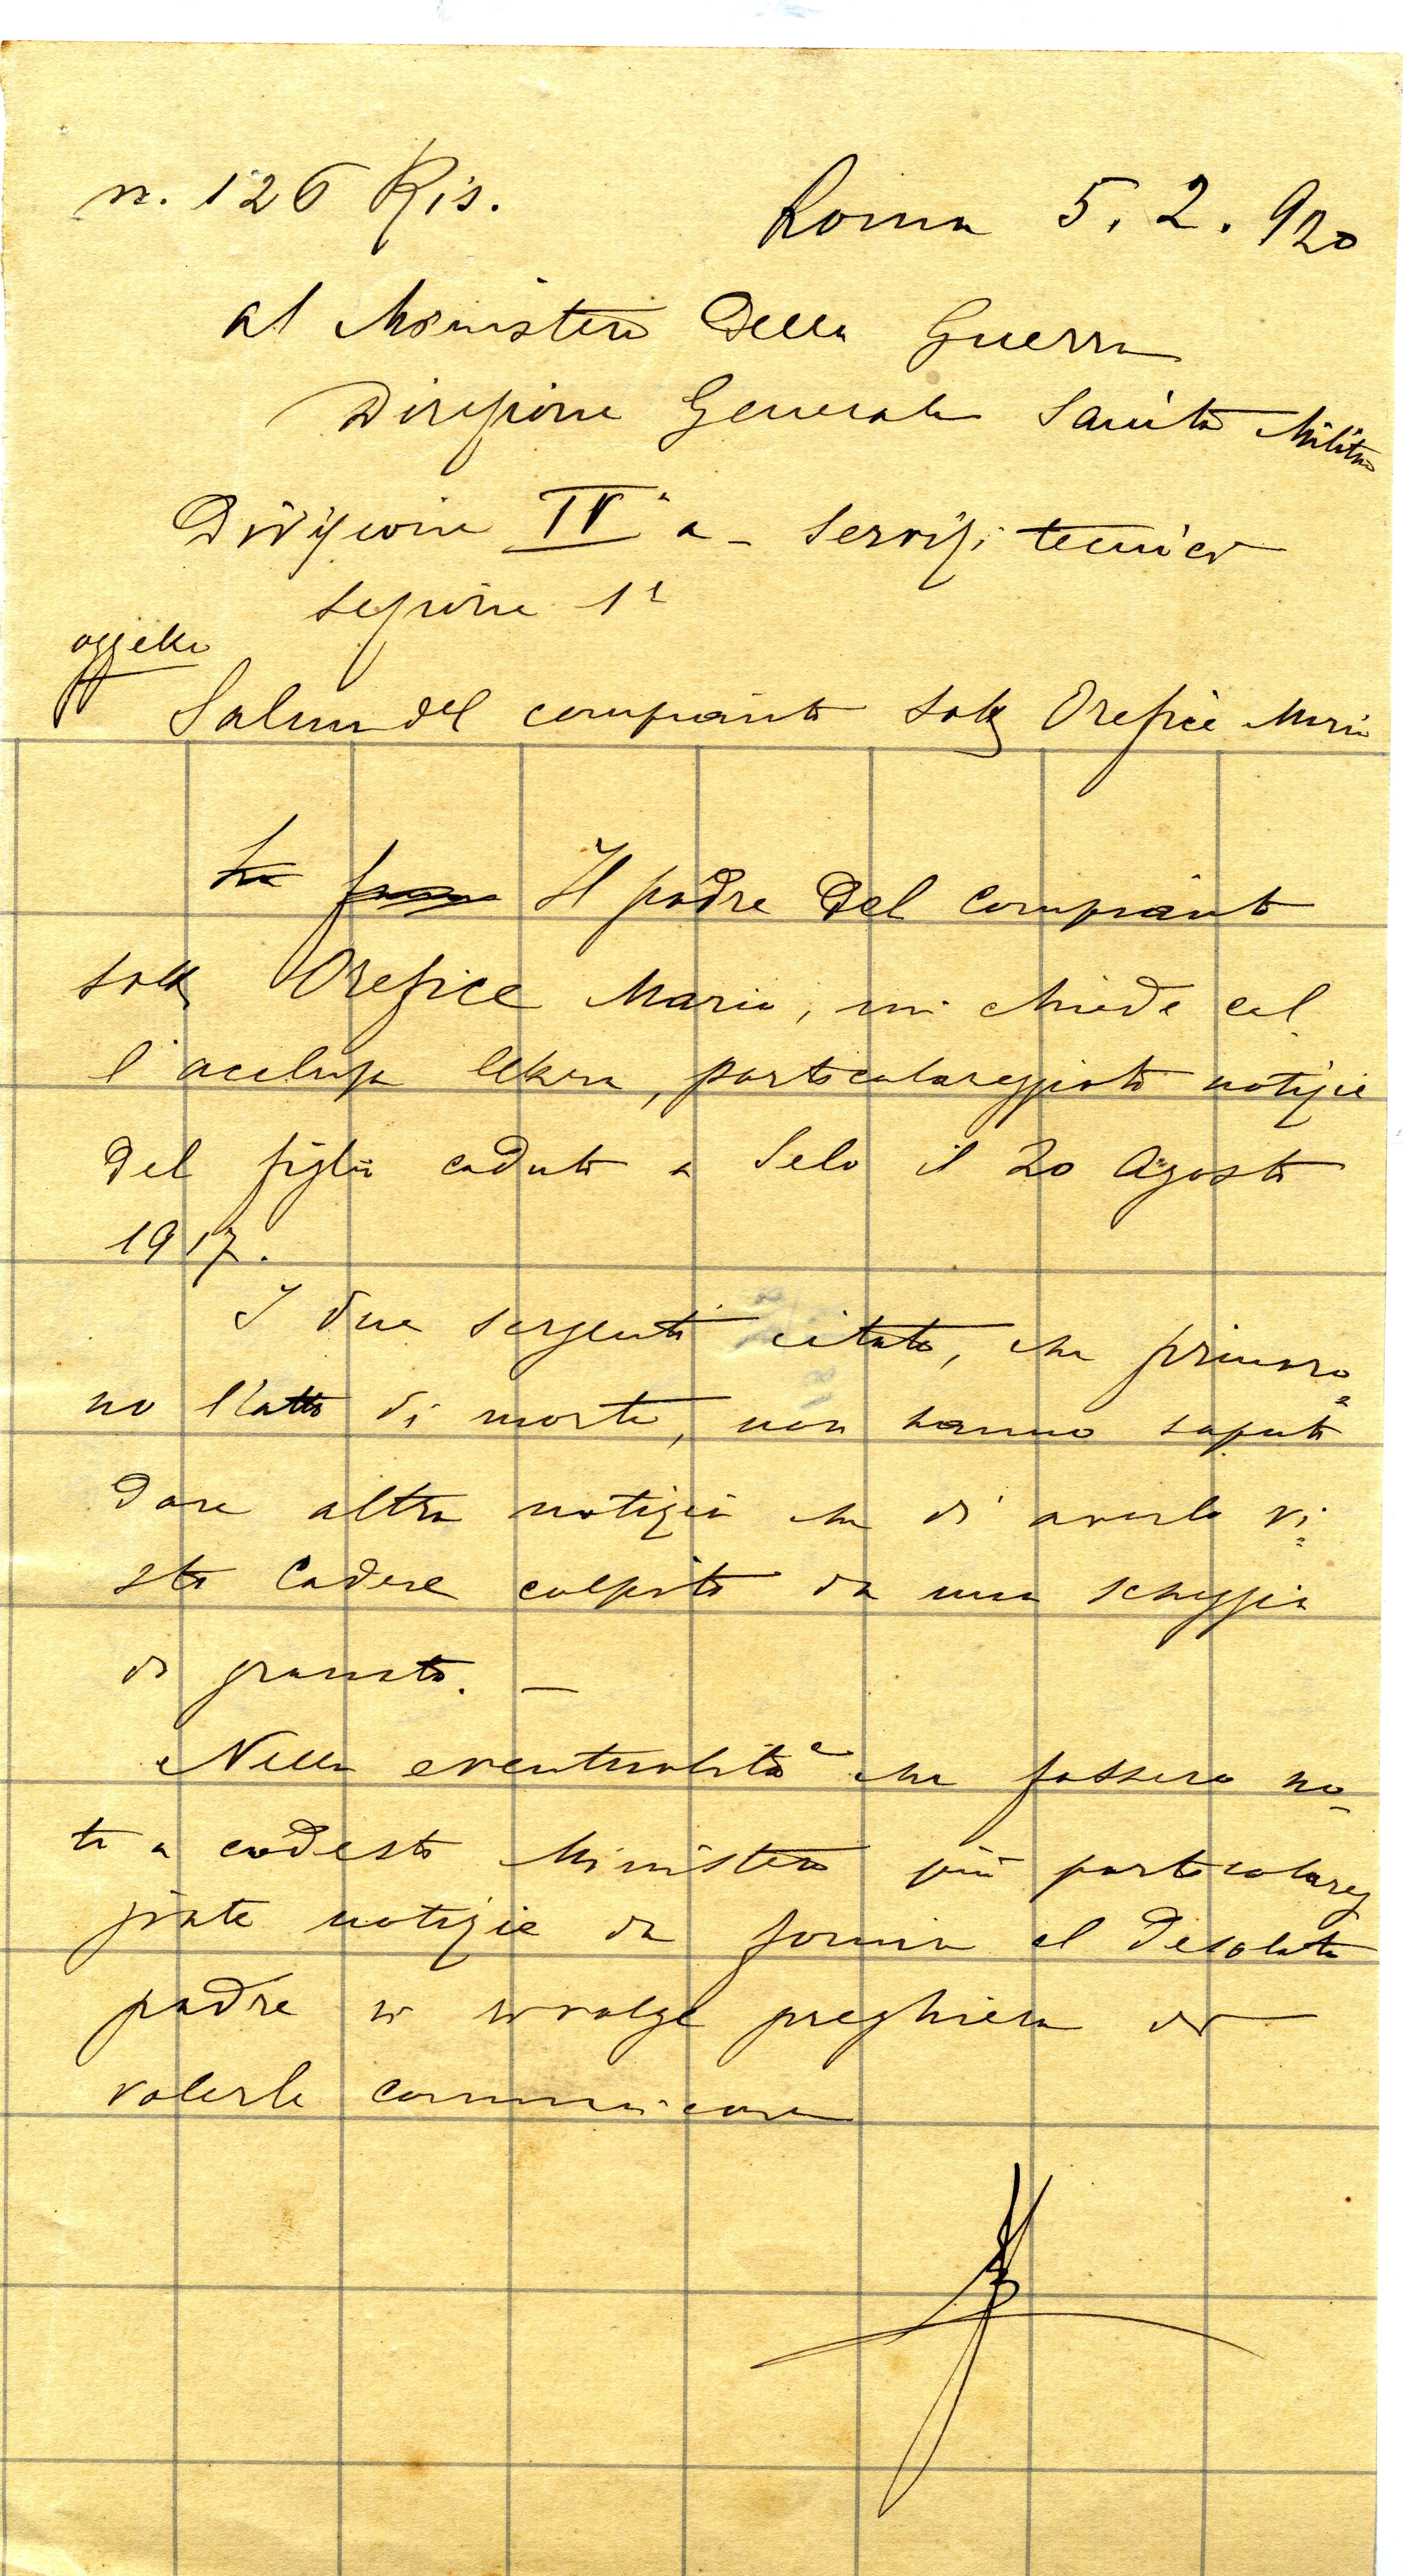 n. 126 Ris.
Roma 5.2.920
al Ministero Della Guerra
Direzione Generale Sanità Militare
Divisione IVa - Servizi tecnici
sezione 1a
oggetto
Salma del compianto sott Orefice Mario
La Il padre Del compianto
sott Orefice Mario, mi chiede col
l'acclusa lettera, particolareggiate notizie
del figlio caduto a Selo il 20 Agosto
1917.
I due sergenti citati, che firmaro=
no l'atto di morte, non hanno saputo
dare altra notizia che di averlo vi=
sto cadere colpito da una scheggia
di granata. -
Nella eventualità che fossero no-
te a codesto Ministero più particolareg
giate notizie da fornire al desolato
padre si rivolge preghiera di
volerle comunicare